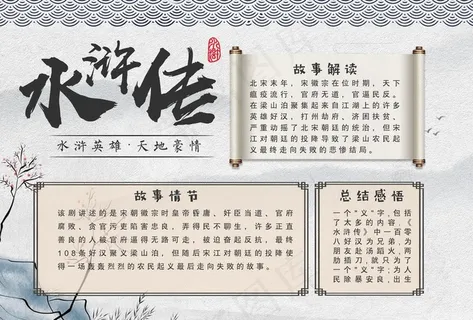 水浒传
水浒英雄·天地豪情
故事解读
北宋末年，宋徽宗在位时期，天下
瘟疫流行，官府无道，官逼民反。
在梁山泊聚集起来自江湖上的许多
英雄好汉，打州劫府、济困扶贫，
严重动摇了北宋朝廷的统治，但宋
江对朝廷的投降导致了梁山农民起
义最终走向失败的悲惨结局。
故事情节
该剧讲述的是宋朝徽宗时皇帝昏庸、奸臣当道、官府
腐败、贪官污吏陷害忠良，弄得民不聊生，许多正直
善良的人被官府逼得无路可走，被迫奋起反抗，最终
108条好汉聚义梁山泊，但随后宋江对朝廷的投降使
得一场轰轰烈烈的农民起义最后走向失败的故事。
总结感悟
一个“义”字，包括
了太多的内容《
水浒传》中一百零
八好汉为兄弟，为
朋友赴汤蹈火，两
肋插刀，就只为了
一个“义”字，为人
民除暴安良，出生